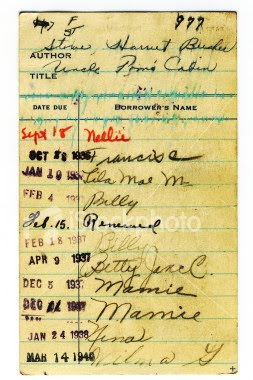 F 977
AUTHOR Stowe, Harriet Beecher
TITLE Uncle Tom's Cabin
DATE DUE BORROWER'S NAME
Sept 18 Nellie
OCT 28 1935 Francis
JAN 10 Lila Mae M.
FEB 4 Billy
Feb. 15. Renewed
FEB 18 1937 Billy
APR 9 1937 Betty Jane C.
DEC 5 1937 Mamie
DEC 1937 Mamie
JAN 24 1938 Tina
MAR 14 1940 Wilma G